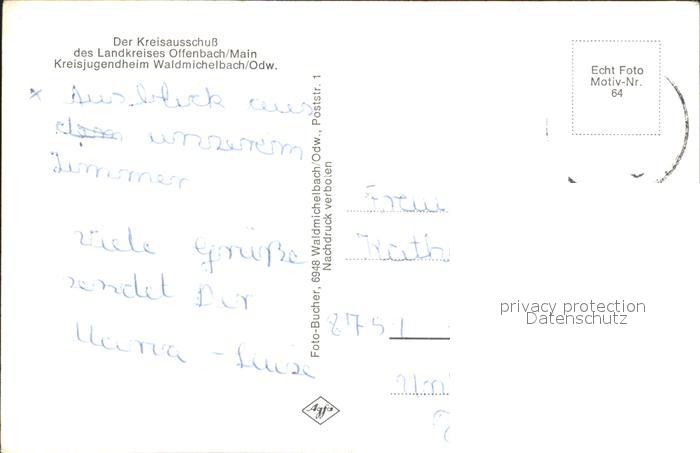 Der Kreisausschuß
des Landkreises Offenbach/Main
Kreisjugendheim Waldmichelbach/Odw.
x Ausblick aus
unserem
Zimmer
Viele Grüße
sendet Dir
Maria - Luise
Foto-Bucher, 6948 Waldmichelbach/Odw., Poststr. 1
Nachdruck verboten
Agfa
Echt Foto
Motiv-Nr.
64
Frau
Kath
8751
Un
privacy protection
Datenschutz